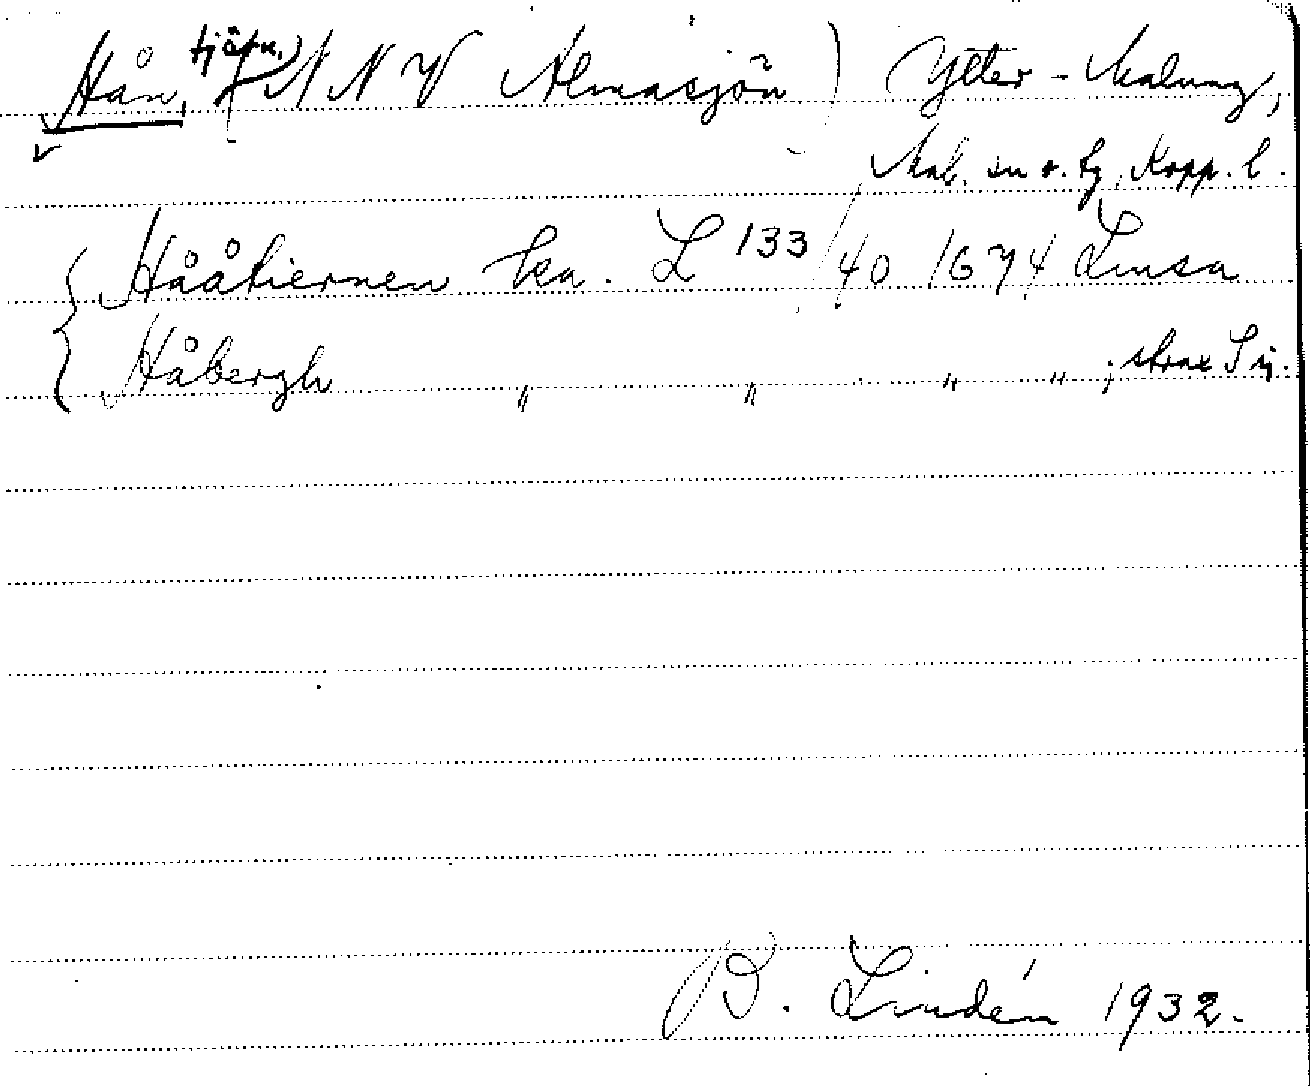 Hån, tjärn. (N N V Almasjön) Ytter-Malung,
Mal. sn o. tg, Kopp. l.
Hååtiernen ka. L 133/40 1674 Limsa
Håbergh " " " " ; strax S ij.
B. Lindén 1932.